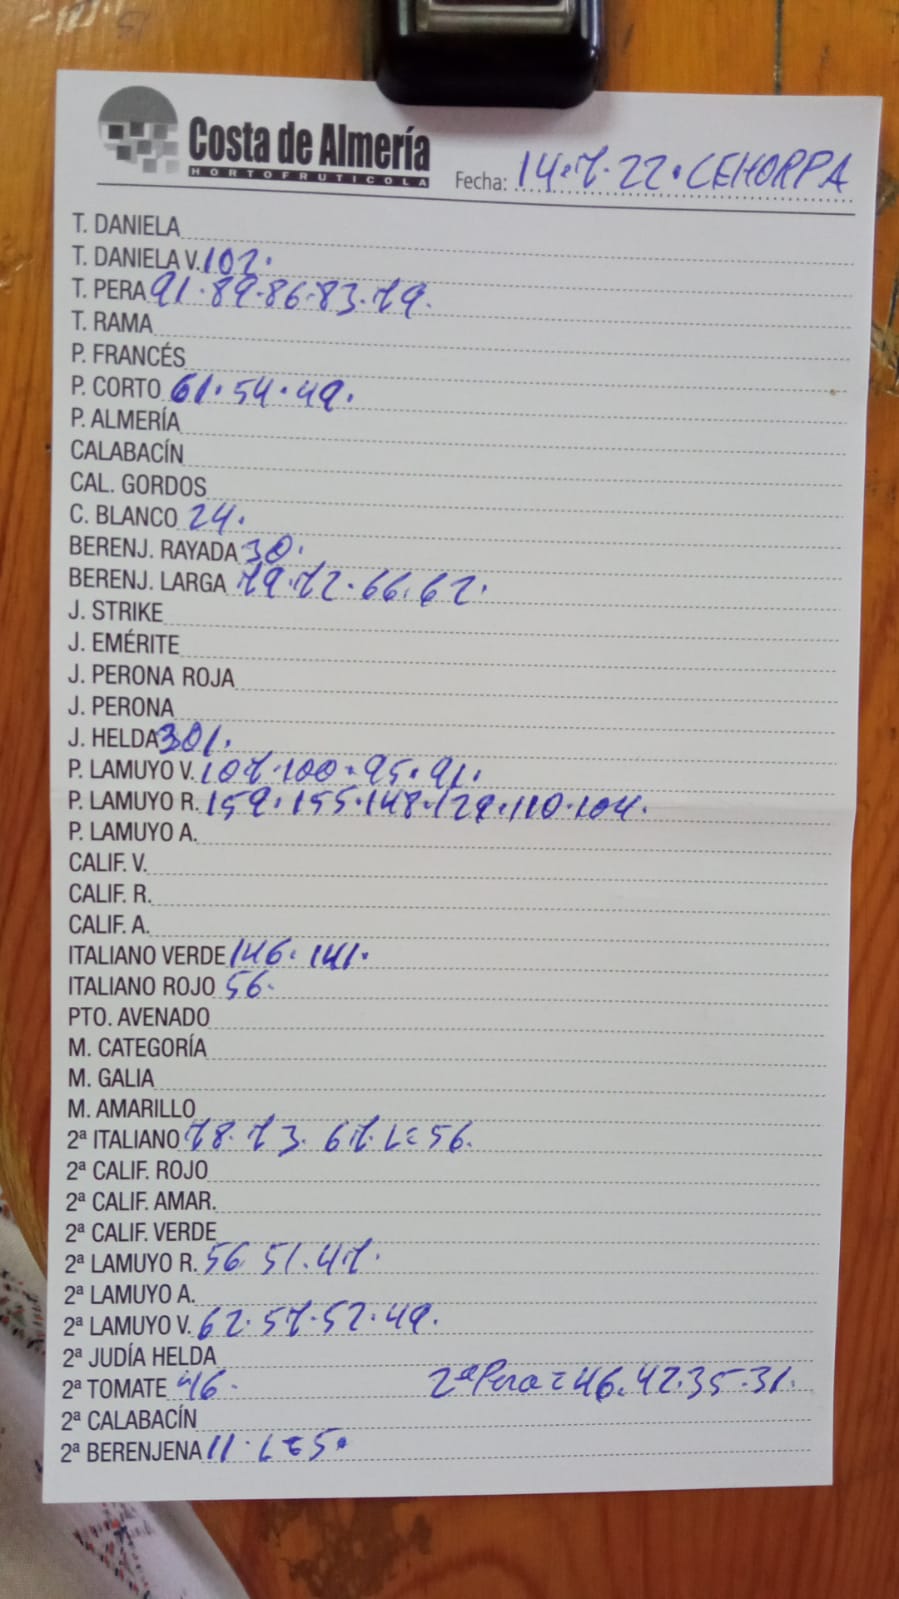 Costa de Almería
HORTOFRUTICOLA
Fecha: 14.7.22. CEHORPA
T. DANIELA
T. DANIELA V. 102.
T. PERA 91.89.86.83.79.
T. RAMA
P. FRANCÉS
P. CORTO 61.54.49.
P. ALMERÍA
CALABACÍN
CAL. GORDOS
C. BLANCO 24.
BERENJ. RAYADA 30.
BERENJ. LARGA 79.72.66.62.
J. STRIKE
J. EMÉRITE
J. PERONA ROJA
J. PERONA
J. HELDA 301.
P. LAMUYO V. 107.100.95.91.
P. LAMUYO R. 159.155.148.129.110.104.
P. LAMUYO A.
CALIF. V.
CALIF. R.
CALIF. A.
ITALIANO VERDE 146.141.
ITALIANO ROJO 56.
PTO. AVENADO
M. CATEGORÍA
M. GALIA
M. AMARILLO
2ª ITALIANO 78.73.67.L=56.
2ª CALIF. ROJO
2ª CALIF. AMAR.
2ª CALIF. VERDE
2ª LAMUYO R. 56 51.47.
2ª LAMUYO A.
2ª LAMUYO V. 62.57.52.49.
2ª JUDÍA HELDA
2ª TOMATE 46. 2ª Pera = 46.42.35.31.
2ª CALABACÍN
2ª BERENJENA 11.L=5.